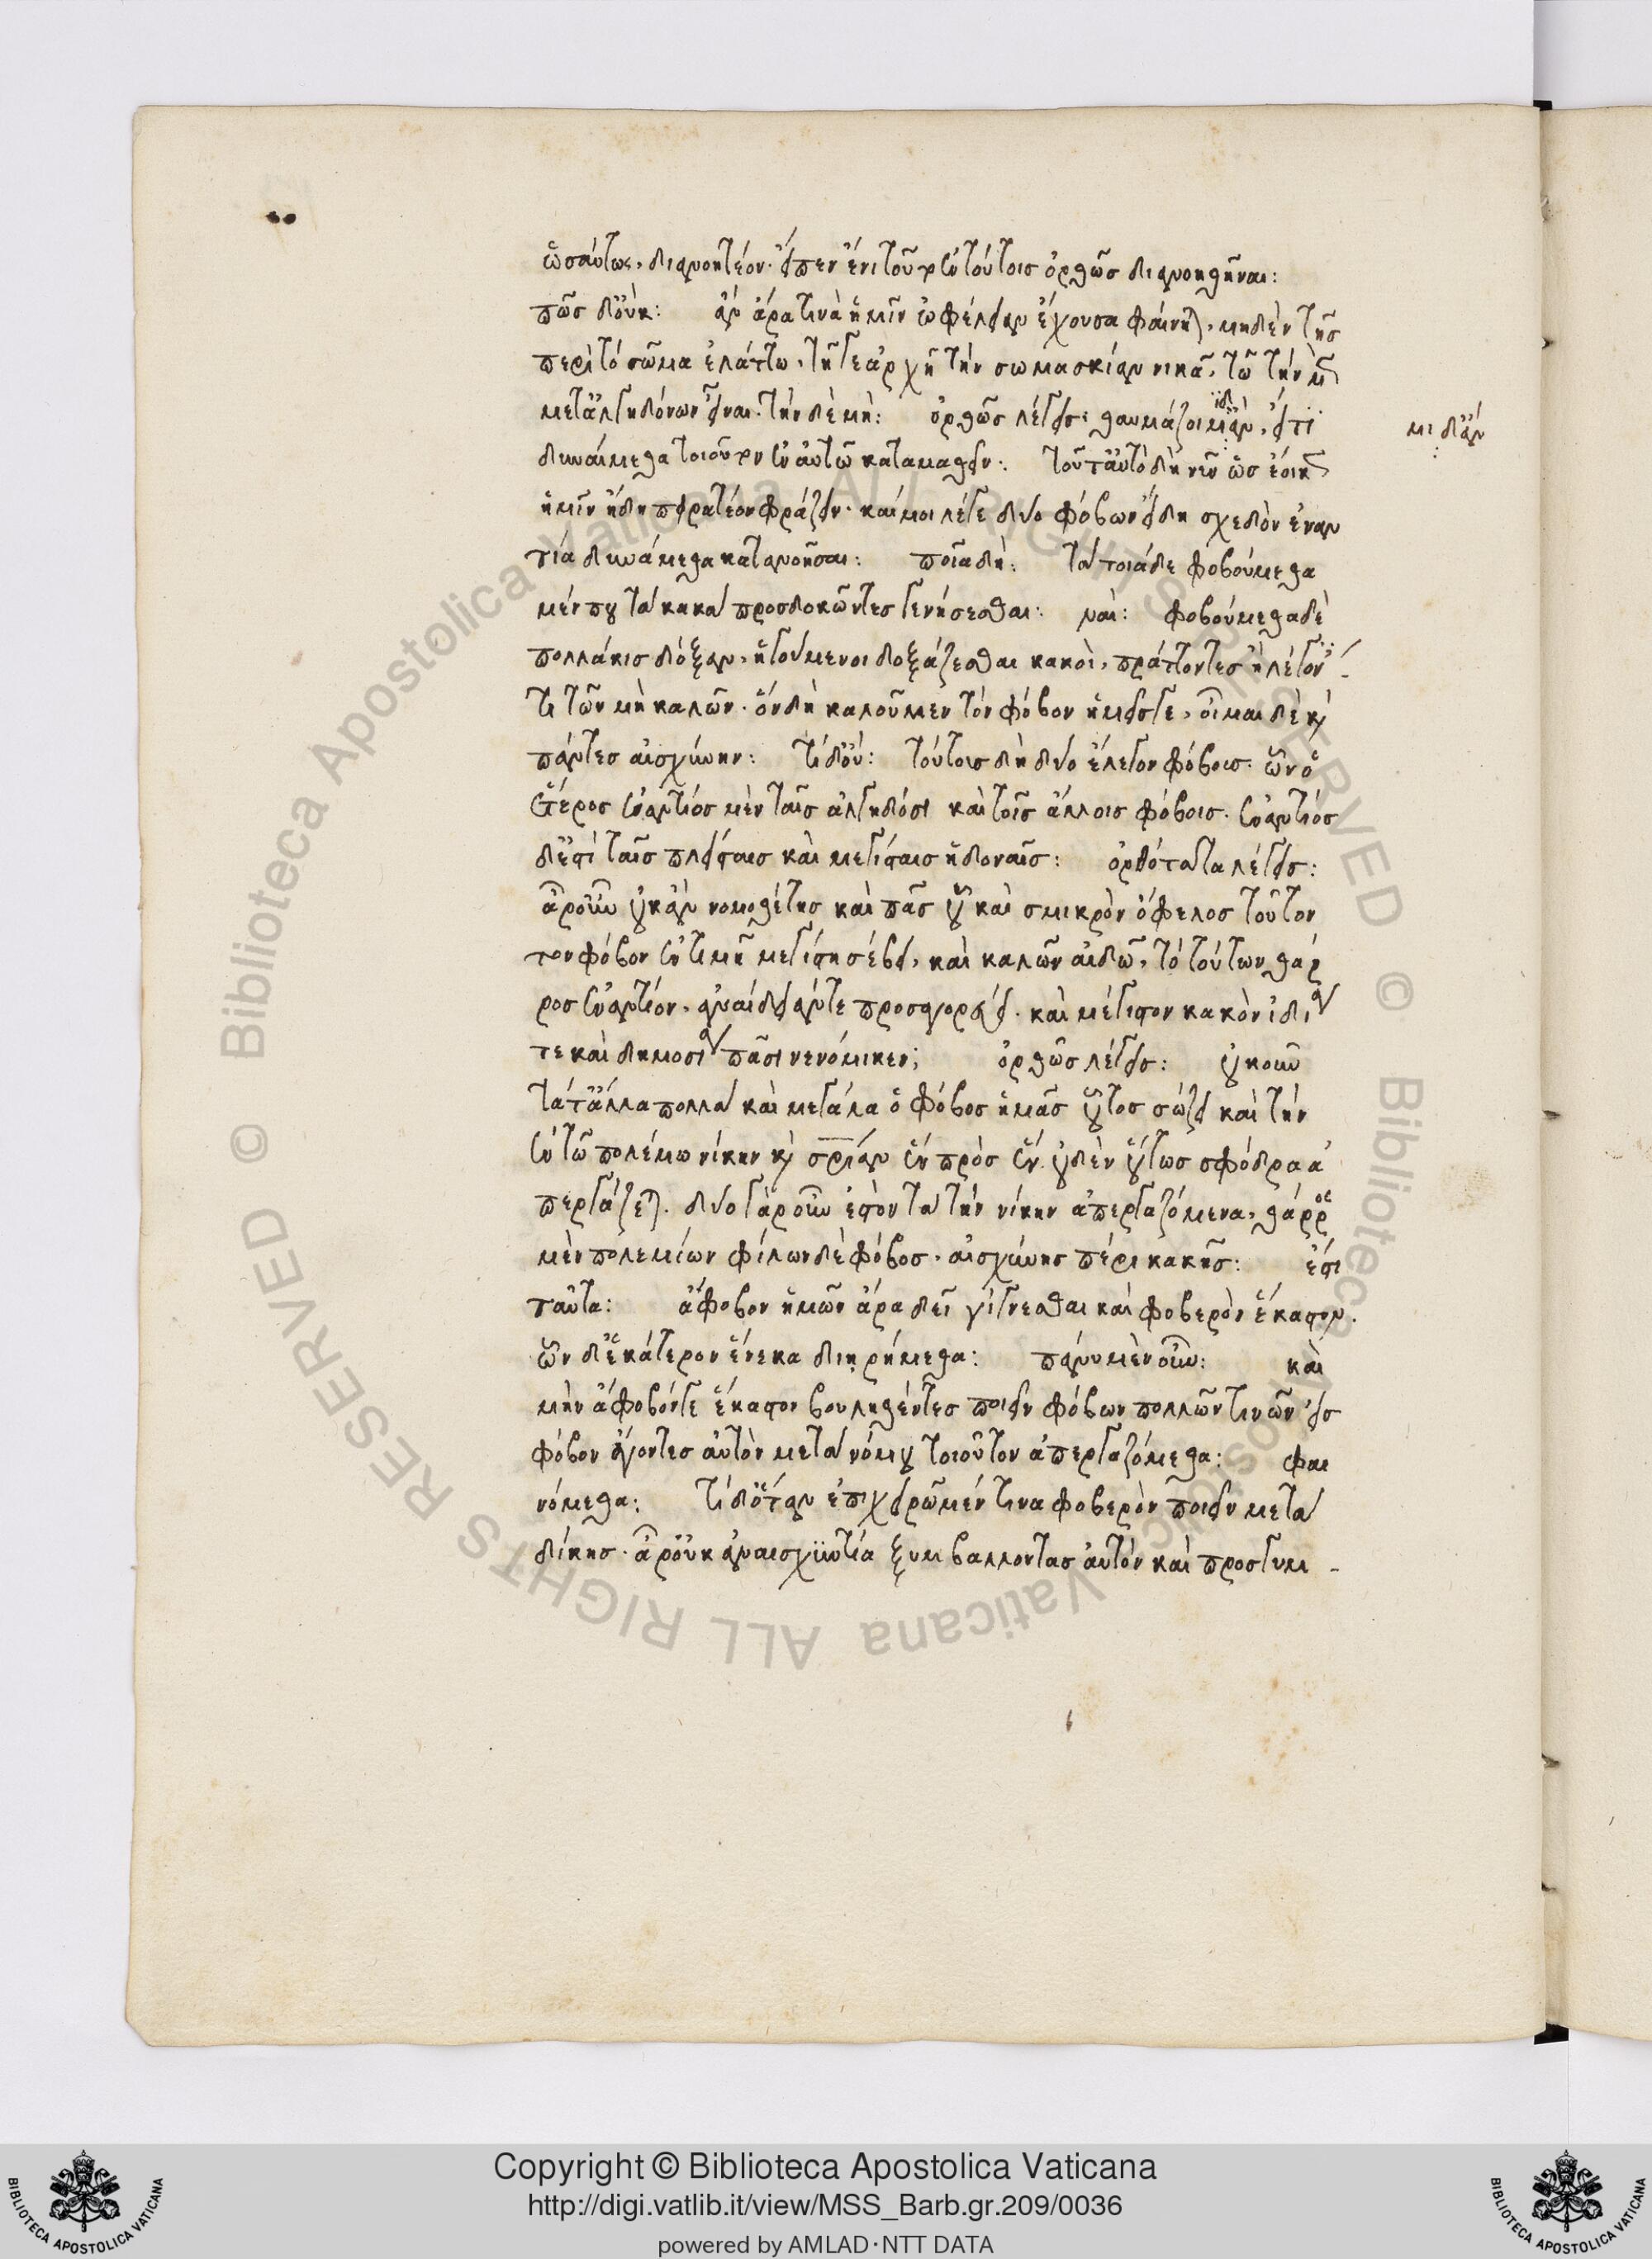 ὡσαύτως, διανοητέον. εἴπερ ἔνι τοῦτο ἐν τούτοις ὀρθῶς διανοηθῆναι:
πῶς δ' οὔκ: ἂν ἄρα τινὰ ἡμῖν ὠφέλειαν ἔχουσα φαίνηται, μηδὲν τῆς
περὶ τὸ σῶμα ἐλάττω, τῇ γε ἀρχῇ τὴν σωμασκίαν νικᾷ, τῷ τὴν μὲν
μετ' ἀλγηδόνων εἶναι. τὴν δὲ μή: ὀρθῶς λέγεις. θαυμάζοιμι δ' ἄν, εἴ τι
μι δ' ἄν
δυναίμεθα τοιοῦτον ἐν αὐτῷ καταμαθεῖν: τοῦτ' αὐτὸ δὴ νῦν ὡς ἔοικεν
ἡμῖν ἤδη πειρατέον φράζειν. καί μοι λέγε δύο φόβων εἴδη σχεδὸν ἐναν
τία δυνάμεθα κατανοῆσαι: ποῖα δή: τὰ τοιάδε φοβούμεθα
μέν που τὰ κακὰ προσδοκῶντες γενήσεσθαι: ναί: φοβούμεθα δὲ
πολλάκις δόξαν, ἡγούμενοι δοξάζεσθαι κακοί, πράττοντες ἢ λέγον
τι τῶν μὴ καλῶν. ὃν δὴ καλοῦμεν τὸν φόβον ἡμεῖς γε, οἶμαι δὲ καὶ
πάντες αἰσχύνην: τί δ' οὔ: τούτοις δὴ δύο ἔλεγον φόβοις. ὧν ὁ
ἕτερος ἐναντίος μὲν ταῖς ἀλγηδόσι καὶ τοῖς ἄλλοις φόβοις. ἐναντίος
δ' ἐστὶ ταῖς πλείσταις καὶ μεγίσταις ἡδοναῖς: ὀρθότατα λέγεις:
ἆρ' οὖν οὐκ ἂν νομοθέτης καὶ πᾶς οὗ καὶ σμικρὸν ὄφελος τοῦτον
τὸν φόβον ἐν τιμῇ μεγίστῃ σέβει, καὶ καλῶν αἰδῶ, τὸ τούτων θάρ
ρος ἐναντίον, ἀναίδειάν τε προσαγορεύει. καὶ μέγιστον κακὸν ἰδίᾳ
τε καὶ δημοσίᾳ πᾶσι νενόμικεν; ὀρθῶς λέγεις: οὐκοῦν
τά τ' ἄλλα πολλὰ καὶ μεγάλα ὁ φόβος ἡμᾶς οὗτος σώζει καὶ τὴν
ἐν τῷ πολέμῳ νίκην καὶ σωτηρίαν ἓν πρὸς ἓν. οὐδὲν οὕτως σφόδρα ἀ
περγάζεται. δύο γὰρ οὖν ἐστὸν τὰ τὴν νίκην ἀπεργαζόμενα, θάρρος
μὲν πολεμίων φίλων δὲ φόβος, αἰσχύνης πέρι κακῆς: ἔστι
ταῦτα: ἄφοβον ἡμῶν ἄρα δεῖ γίγνεσθαι καὶ φοβερὸν ἕκαστον.
ὧν δ' ἑκάτερον ἕνεκα διῃρήμεθα: πάνυ μὲν οὖν: καὶ
μὴν ἄφοβόν γε ἕκαστον βουληθέντες ποιεῖν φόβων πολλῶν τινῶν εἰς
φόβον ἄγοντες αὐτὸν μετὰ νόμου τοιοῦτον ἀπεργαζόμεθα: φαι
νόμεθα: τί δ' ὅταν ἐπιχειρῶμέν τινα φοβερὸν ποιεῖν μετὰ
δίκης. ἆρ' οὐκ ἀναισχυντίᾳ ξυμβάλλοντας αὐτὸν καὶ προσγυμ-
Copyright © Biblioteca Apostolica Vaticana
http://digi.vatlib.it/view/MSS_Barb.gr.209/0036
powered by AMLAD·NTT DATA
BIBLIOTECA APOSTOLICA VATICANA
BIBLIOTECA APOSTOLICA VATICANA
© Biblioteca Apostolica Vaticana ALL RIGHTS RESERVED © Biblioteca Apostolica Vaticana ALL RIGHTS RESERVED